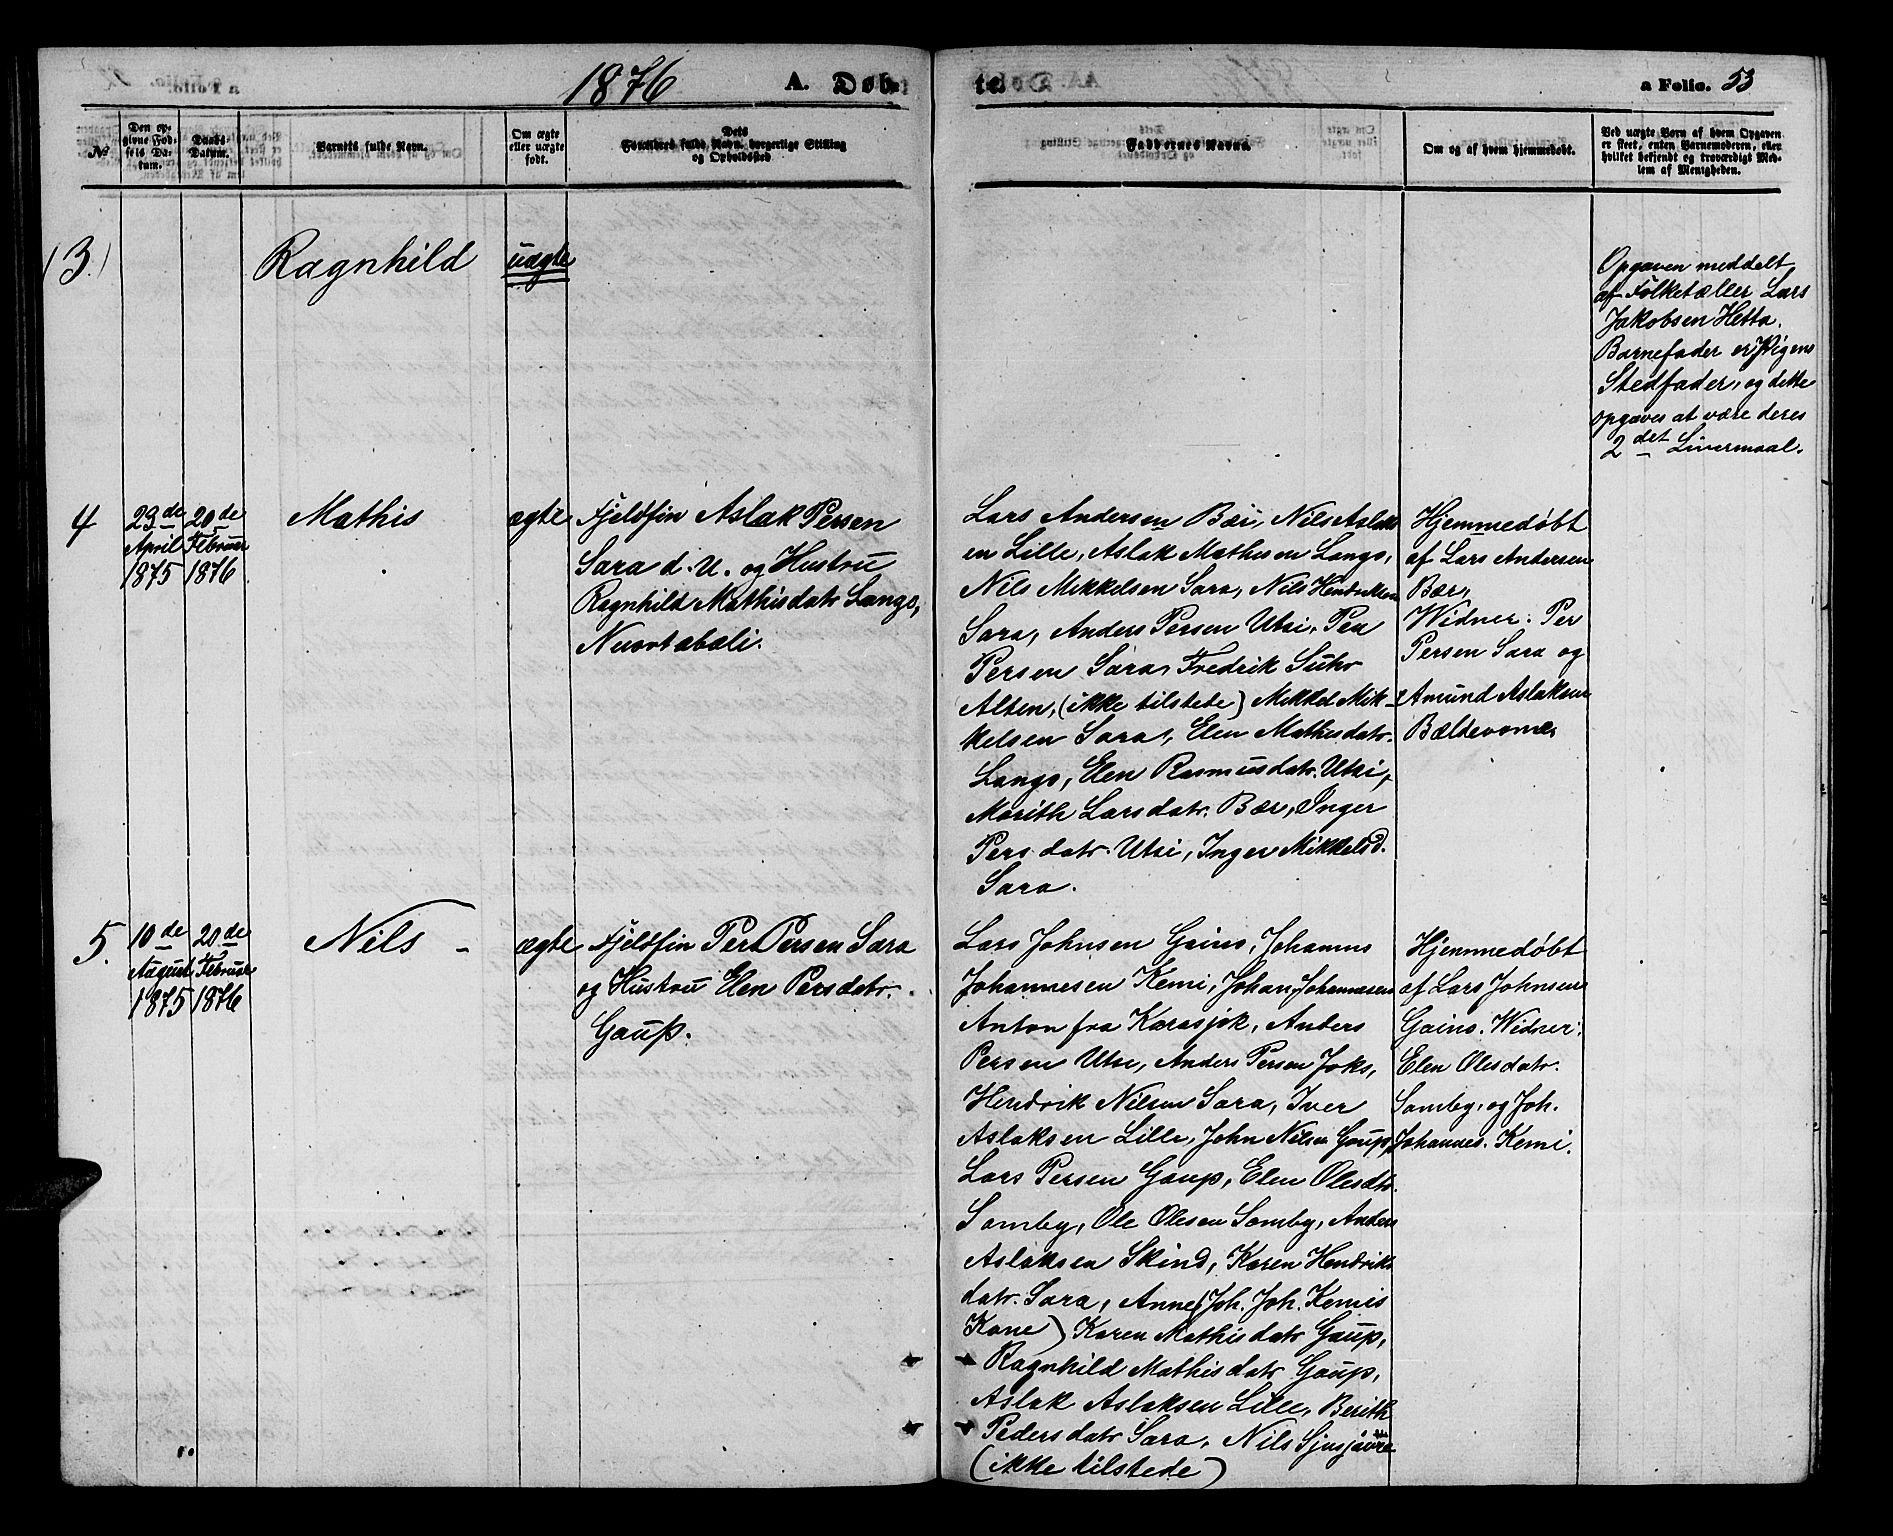 1876 A. Døb-
te. a Folio. 53
№
Den op-
givne Fød-
sels Da-
tum.
Daabs
Datum.
Barnets fulde Navn.
Om ægte
eller uægte
født.
Dets
Forældres fulde Navn, borgerlige Stilling
og Opholdssted
Faddernes Navne.
Om og af hvem hjemmedøbt.
Ved uægte Børn af hvem Opgaven
er skeet, enten Barnemoderen, eller
hvilket bekjendt og troværdigt Med-
lem af Menigheden.
(3.)
Ragnhild
uægte
Opgaven meddelt
af Folketæller Lars
Jakobsen Hetta.
Barnefader er Pigens
Stedfader, og dette
opgaves at være deres
2det Leiermaal.
4
23de
April
1875
20de
Februar
1876
Mathis
ægte
Fjeldfin Aslak Persen
Sara d. u. og Hustru
Ragnhild Mathisdatr Lango,
Nuortabæli.
Lars Andersen Bær, Nils Aslaks
en Lille, Aslak Mathisen Lango,
Nils Mikkelsen Sara, Nils Henriksen
Sara, Anders Persen Utsi, Per
Persen Sara, Fredrik Suhr
Alten, (ikke tilstede) Mikkel Mik-
kelsen Sara, Elen Mathisdatr.
Lango, Elen Rasmusdatr. Utsi,
Marith Larsdatr. Bær, Inger
Persdatr. Utsi, Inger Mikkelsd.
Sara.
Hjemmedøbt
af Lars Andersen
Bær,
Widner: Per
Persen Sara og
Amund Aslaksen
5.
10de
August
1875
20de
Februar
1876
Nils -
ægte
Fjeldfin Per Persen Sara
og Hustru Elen Persdatr.
Gaup.
Lars Johnsen Gaino, Johannes
Johannesen Kemi, Johan Johannesen
Anton fra Karasjok, Anders
Persen Utsi, Anders Persen Joks,
Hendrik Nilsen Sara, Iver
Aslaksen Lille, John Nilsen Gaup,
Lars Persen Gaup, Elen Olesdtr.
Somby, Ole Olesen Somby, Anders
Aslaksen Skind, Karen Hendriks
datr. Sara, Anne (Joh. Joh. Kemis
Kone) Karen Mathisdatr Gaup,
Ragnhild Mathisdatr Gaup,
Aslak Aslaksen Lille, Berith
Pedersdatr Sara, Nils
(ikke tilstede)
Hjemmedøbt
af Lars Johnsen
Gaino. Widner:
Elen Olesdatr.
Somby, og Joh.
Johannes. Kemi.